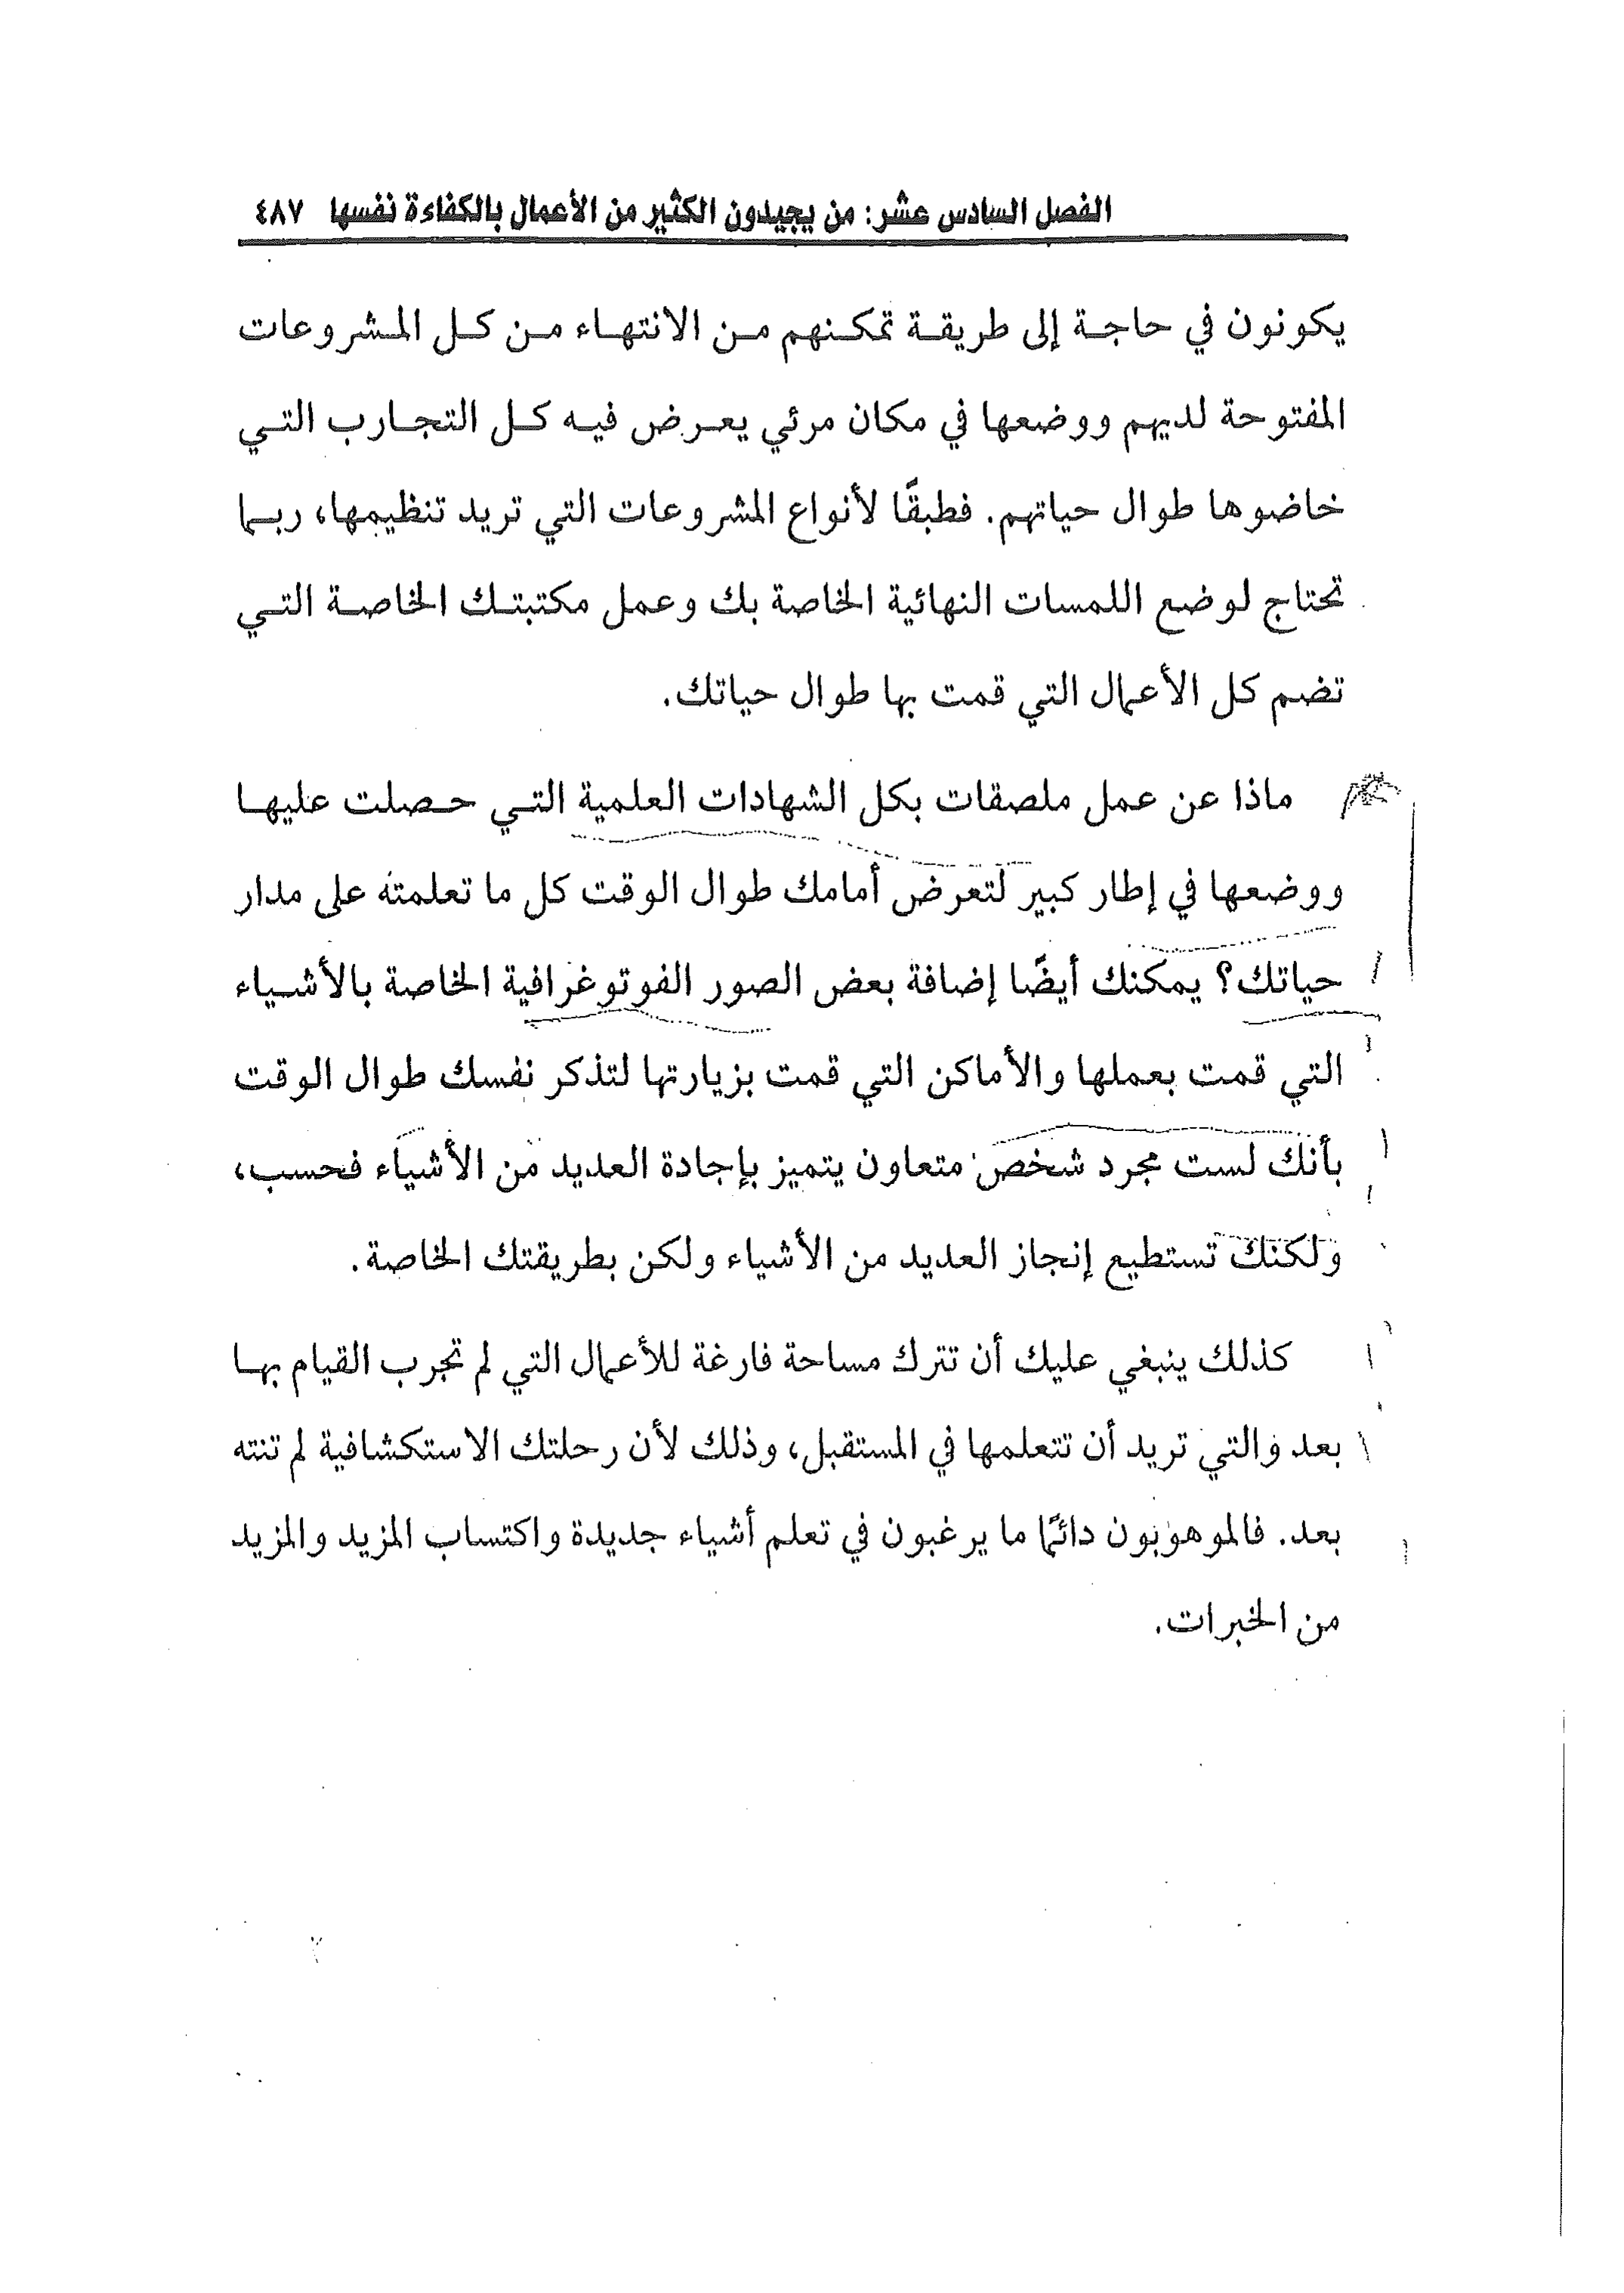 الفصل السادس عشر: من يجيدون الكثير من الأعمال بالكفاءة نفسها ٤٨٧
يكونون في حاجة إلى طريقة تمكنهم من الانتهاء من كل المشروعات
المفتوحة لديهم ووضعها في مكان مرئي يعرض فيه كل التجارب التي
خاضوها طوال حياتهم. فطبقًا لأنواع المشروعات التي تريد تنظيمها، ربما
تحتاج لوضع اللمسات النهائية الخاصة بك وعمل مكتبتك الخاصة التي
تضم كل الأعمال التي قمت بها طوال حياتك.
ماذا عن عمل ملصقات بكل الشهادات العلمية التي حصلت عليها
ووضعها في إطار كبير لتعرض أمامك طوال الوقت كل ما تعلمته على مدار
حياتك؟ يمكنك أيضًا إضافة بعض الصور الفوتوغرافية الخاصة بالأشياء
التي قمت بعملها والأماكن التي قمت بزيارتها لتذكر نفسك طوال الوقت
بأنك لست مجرد شخص متعاون يتميز بإجادة العديد من الأشياء فحسب،
ولكنك تستطيع إنجاز العديد من الأشياء ولكن بطريقتك الخاصة.
كذلك ينبغي عليك أن تترك مساحة فارغة للأعمال التي لم تجرب القيام بها
بعد والتي تريد أن تتعلمها في المستقبل، وذلك لأن رحلتك الاستكشافية لم تنته
بعد. فالموهوبون دائمًا ما يرغبون في تعلم أشياء جديدة واكتساب المزيد والمزيد
من الخبرات.